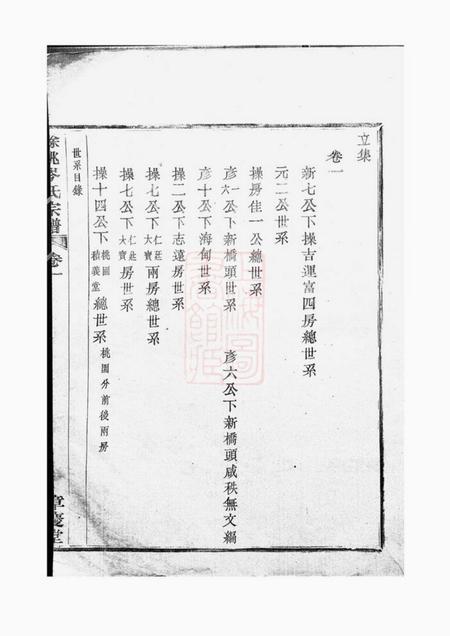 立集
卷一
新七公下操吉運富四房總世系
元二公世系
操房佳一公總世系
彥一六公下新橋頭世系 彥六公下新橋頭咸秩無文編
彥十公下海甸世系
操二公下志遠房世系
操七公下仁莊大寶兩房總世系
操七公下仁莊大寶房世系
操十四公下桃園積義堂總世系桃園分前後兩房
世系目錄
餘姚岑氏宗譜 卷一
章慶堂